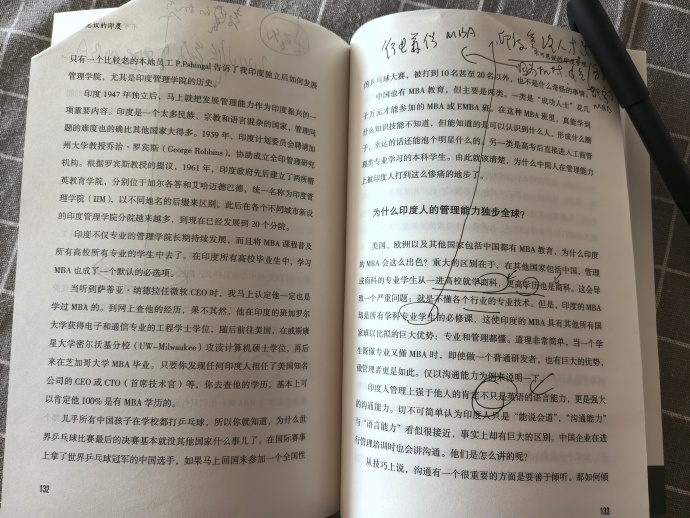 思议的印度
只有一个比较老的本地员工 P.Pahingal 告诉了我印度独立后如何发展
管理学院，尤其是印度管理学院的历史。
印度 1947 年独立后，马上就把发展管理能力作为印度振兴的一
项重要内容。印度是一个太多民族、宗教和语言混杂的国家，管理问
题的难度也的确比其他国家大得多。1959 年，印度计划委员会聘请加
州大学教授乔治·罗宾斯（George Robbins），协助成立全印管理研究
机构。根据罗宾斯教授的提议，1961 年，印度政府先后建立了两所精
英教育学院，分别位于加尔各答和艾哈迈德巴德，统一名称为印度管
理学院（IIM），以不同地名的后缀来区别。此后在各个不同城市新设
的印度管理学院分院越来越多，到现在已经发展到 20 个分院。
印度不仅专业的管理学院长期持续发展，而且将 MBA 课程普及
所有高校所有专业的学生中去了。在印度所有高校毕业生中，学习
MBA 也成了一个默认的必选项。
当听到萨蒂亚·纳德拉任微软 CEO 时，我马上认定他一定也是
学过 MBA 的。到网上查他的经历，果不其然，他在印度的新加罗尔
大学获得电子和通信专业的工程学士学位，随后前往美国，在威斯康
星大学密尔沃基分校（UW-Milwaukee）攻读计算机硕士学位，再后
来在芝加哥大学 MBA 毕业。只要你发现任何印度人担任了美国知名
公司的 CEO 或 CTO（首席技术官）等，你去查他的学历，基本上可
以肯定他 100% 是有 MBA 学历的。
几乎所有中国孩子在学校都打乒乓球，所以你就知道，为什么世
界乒乓球比赛最后的决赛基本就没其他国家什么事儿了。在国际赛事
上拿了世界乒乓球冠军的中国选手，如果马上回国来参加一个全国性
132
MBA
的乒乓球大赛，被打到 10 名甚至 20 名以外，也不是什么奇怪的事情。
中国也有 MBA 教育，但主要是两类。一类是“成功人士”花几
十万元才能参加的 MBA 或 EMBA 班，在这种 MBA 班里，真能学到
什么知识技能不知道，但能知道的是可以认识到什么人，形成什么圈
子，幸运的话还能泡个明星什么的。另一类是高考后直接进入工商管
理类专业学习的本科学生。由此就该清楚，为什么中国人在管理能力
上被印度人打到这么惨痛的地步了。
为什么印度人的管理能力独步全球？
美国、欧洲以及其他国家包括中国都有 MBA 教育，为什么印度
的 MBA 会这么出色？重大的区别在于：在其他国家包括中国，管理
或商科的专业学生从一进高校就学商科，更高学历也是商科。这会导
致一个严重问题：就是不懂各个行业的专业技术。但是，印度的 MBA
却是所有学科专业学生的必修课，这使印度的 MBA 具有其他所有国
家难以比拟的巨大优势：专业和管理都懂。道理非常简单，当一个学
生既懂专业又懂 MBA 时，即使做一个普通研发者，也有巨大的优势，
做管理者更是如此。仅以沟通能力为例来说明一下。
印度人管理上强于他人的肯定不只是英语的语言能力，更是强大
的沟通能力。切不可简单认为印度人只是“能说会道”，“沟通能力”
与“语言能力”看似很接近，事实上却有巨大的区别。中国企业在进
行管理培训时也会讲沟通。他们是怎么讲的呢？
从技巧上说，沟通有一个很重要的方面是要善于倾听。那如何倾
133